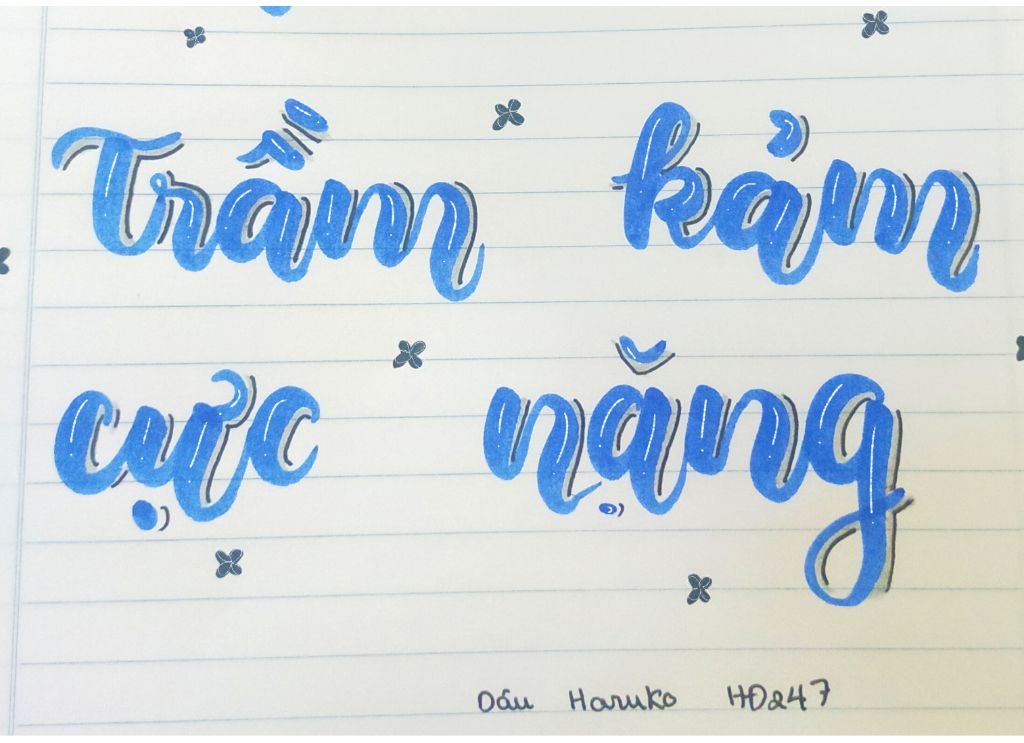 Trầm kảm
cực nặng
Dấu Haruko HD247